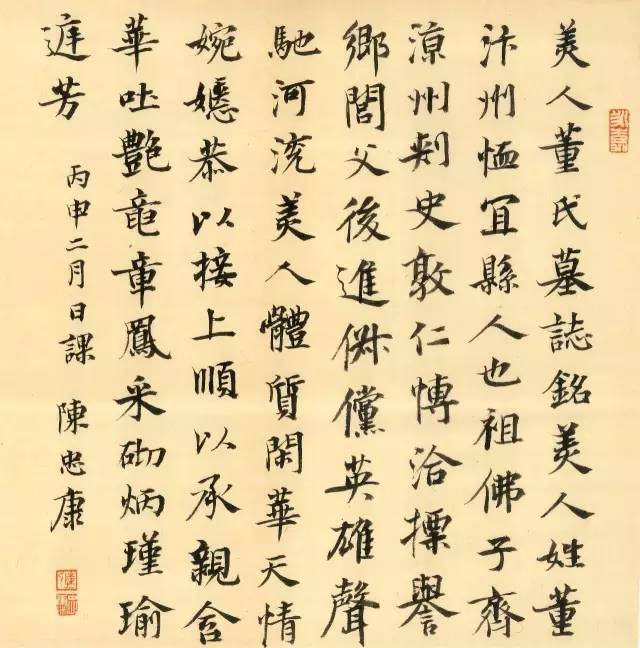 美人董氏墓誌銘美人姓董
汴州恤冝縣人也祖佛子齊
涼州刺史敦仁博洽摽譽
鄉閭父後進俶儻英雄聲
馳河沇美人體質閑華天情
婉嫕恭以接上順以承親含
華吐艷竜章鳳采砌炳瑾瑜
庭芳
丙申二月日課 陳忠康